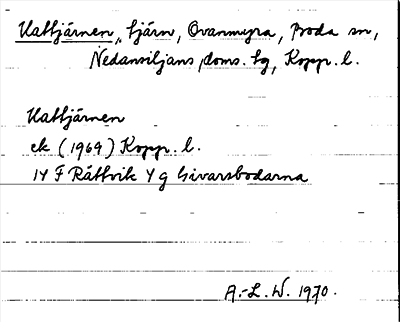 Kattjärnen, tjärn, Ovanmyra, Boda sn,
Nedansiljans doms. tg, Kopp. l.
Kattjärnen
ek (1969) Kopp. l.
14 F Rättvik 4 g Sivarsbodarna
A.-L. W. 1970.